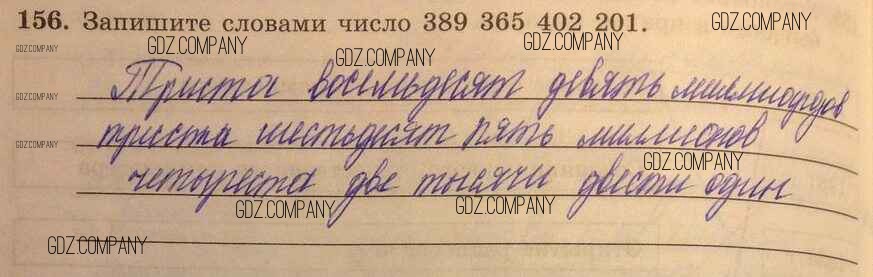 156. Запишите словами число 389 365 402 201.
GDZ.COMPANY GDZ.COMPANY GDZ.COMPANY GDZ.COMPANY
Триста восемьдесят девять миллиардов
GDZ.COMPANY
триста шестьдесят пять миллионов
GDZ.COMPANY GDZ.COMPANY
четыреста две тысячи двести один
GDZ.COMPANY GDZ.COMPANY
GDZ.COMPANY